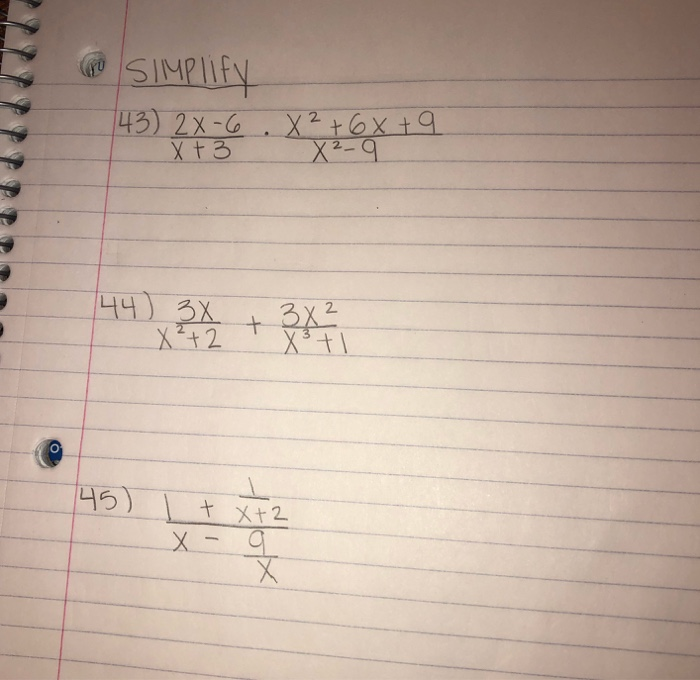 SIMPlIFY
43) 2x-6 . x²+6x+9
x+3 x²-9
44) 3x + 3x²
x²+2 x³+1
45) 1 + 1
x+2
x - 9
x